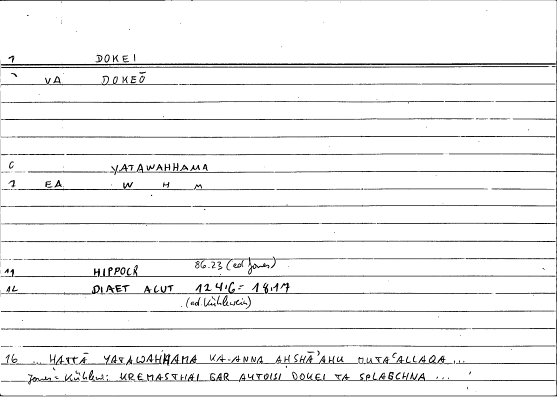 1 DOKEI
VA DOKEŌ
C YATAWAHHAMA
1 EA W H M
11 HIPPOCR 86.23 (ed Jones)
12 DIAET ACUT 124.6 = 18.17
(ed. Kühlewein)
16 ... HATTĀ YATAWAHHAMA KA-ANNA AHSHĀ'AHU MUTAʿALLAQA ...
Jones = Kühlew: KREMASTHAI GAR AUTOISI DOKEI TA SPLAGCHNA ...